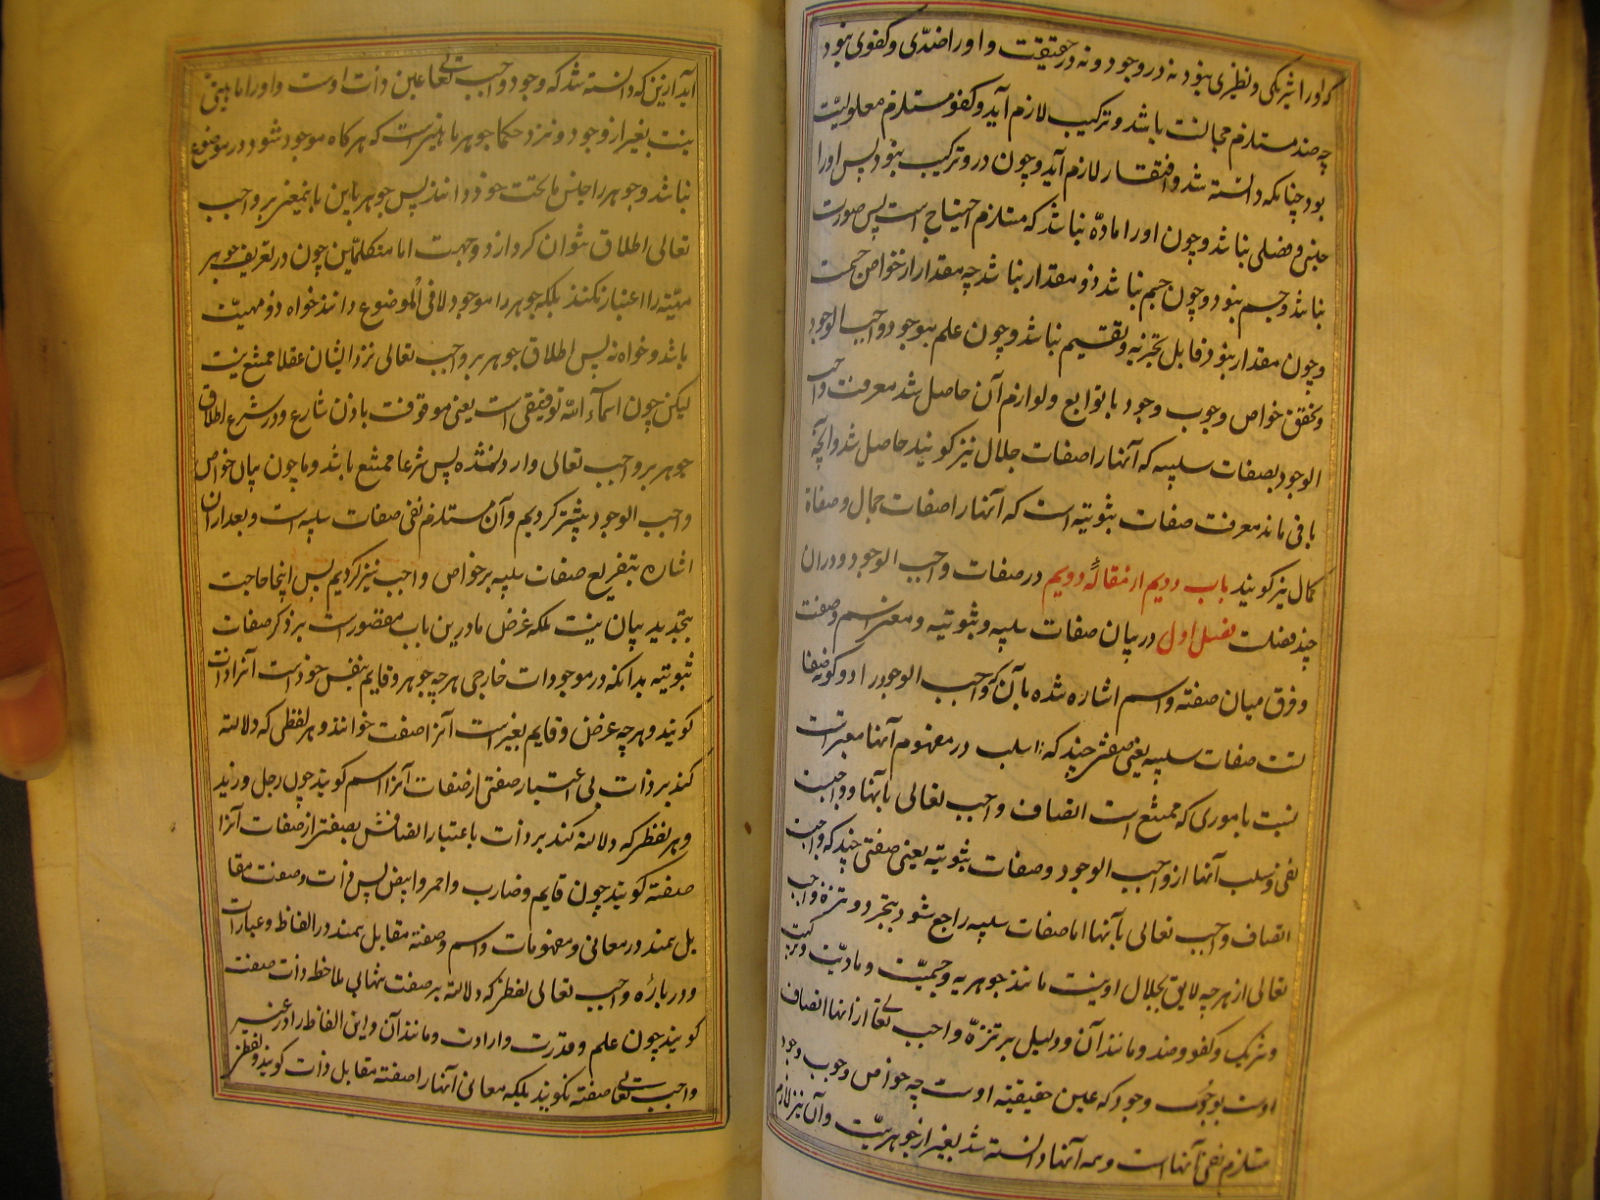 که او را شریکی و نظیری نبود نه در وجود و نه در حقیقت و او را ضدّی و کفوی نبود
چه ضد مستلزم مجالست باشد و ترکیب لازم آید و کفو مستلزم معلولیّت
بود چنانکه دانسته شد و افتقار لازم آید و چون در و ترکیب نبود پس او را
جنس و فصلی نباشد و چون او را مادّه نباشد که مستلزم احتیاج است پس صورت
نباشد و جسم نبود و چون جسم نباشد ذو مقدار نباشد چه مقدار از خواص جسمست
و چون مقدار نبود قابل تجزیه و تقسیم نباشد و چون علم بوجود واجب الوجود
و تحقق خواص وجوب وجود با توابع و لوازم آن حاصل شد معرفت واجب
الوجود بصفات سلبیه که آنها را صفات جلال نیز گویند حاصل شد و آنچه
باقی ماند معرفت صفات ثبوتیه است که آنها را صفات جمال و صفاة
کمال نیز گویند باب دویم از مقالهٔ دویم در صفات واجب الوجود و در آن
چند فصلست فصل اول در بیان صفات سلبیه و ثبوتیه و معنی اسم و صفت
و فرق میان صفته و اسم اشاره شده بآن که واجب الوجود را دو گونه صفا
تست صفات سلبیه یعنی صفتی چند که سلب در مفهوم آنها معتبرست
نسبت باموری که ممتنع است اتصاف واجب تعالی بآنها و واجبست
نفی و سلب آنها از واجب الوجود و صفات ثبوتیه یعنی صفتی چند که واجبست
اتصاف واجب تعالی بآنها اما صفات سلبیه راجع شود بتجرد و تنزه واجب
تعالی از هر چه لایق بجلال او نیست مانند جوهریه و جسمیّت و مادیّت و ترکیب
و شریک و کفو و ضد و مانند آن و دلیل بر تنزّه واجب تعالی از اینها اتصاف
اوست بوجوب وجود که عین حقیقته اوست چه خواص وجوب وجود
مستلزم نفی آنهاست و همه آنها دانسته شد بغیر از جوهریّت و آن نیز لازم
آید از این که دانسته شد که وجود واجب تعالی عین ذات اوست و او را ماهیتی
نیست بغیر از وجود و نزد حکما جوهر ماهیتیست که هر گاه موجود شود در موضوع
نباشد و جوهر را جنس ماتحت خود دانند پس جوهر باین باین معنی بر واجب
تعالی اطلاق نتوان کرد از دو جهت اما متکلمین چون در تعریف جوهر
مهیّته را اعتبار نکنند بلکه جوهر را موجود لا فی الموضوع دانند خواه ذو مهیت
باشد و خواه نه پس اطلاق جوهر بر واجب تعالی نزد ایشان عقلا ممتنع نیست
لیکن چون اسمآء اللّه توقیفی است یعنی موقوفست باذن شارع و در شرع اطلاق
جوهر بر واجب تعالی وارد نشده پس شرعا ممتنع باشد و ما چون بیان خواص
واجب الوجود پیشتر کردیم و آن مستلزم نفی صفات سلبیه است و بعد از آن
اشاره بتفریع صفات سلبیه بر خواص واجب نیز کردیم پس اینجا حاجت
بتجدید بیان نیست بلکه غرض ما در این باب مقصورست بر ذکر صفات
ثبوتیه بدانکه در موجودات خارجی هر چه جوهر و قایم بنفس خود است آنرا ذات
گویند و هر چه عرض و قایم بغیرست آنرا صفت خوانند و هر لفظی که دلالته
کند بر ذات بی اعتبار صفتی از صفات آنرا اسم گویند چون رجل و زید
و هر لفظی که دلالته کند بر ذات باعتبار اتصافش بصفتی از صفات آنرا
صفته گویند چون قایم و ضارب و احمر و ابیض پس ذات و صفت مقا
بل همند در معانی و مفهومات و اسم و صفته مقابل همند در الفاظ و عبارات
و در بارهٔ واجب تعالی لفظی که دلالته بر صفت تنها بی ملاحظه ذات صفت
گویند چون علم و قدرت و ارادت و مانند آن و این الفاظ را در غیر
واجب تعالی صفته نگویند بلکه معانی آنها را صفته مقابل ذات گویند و لفظی